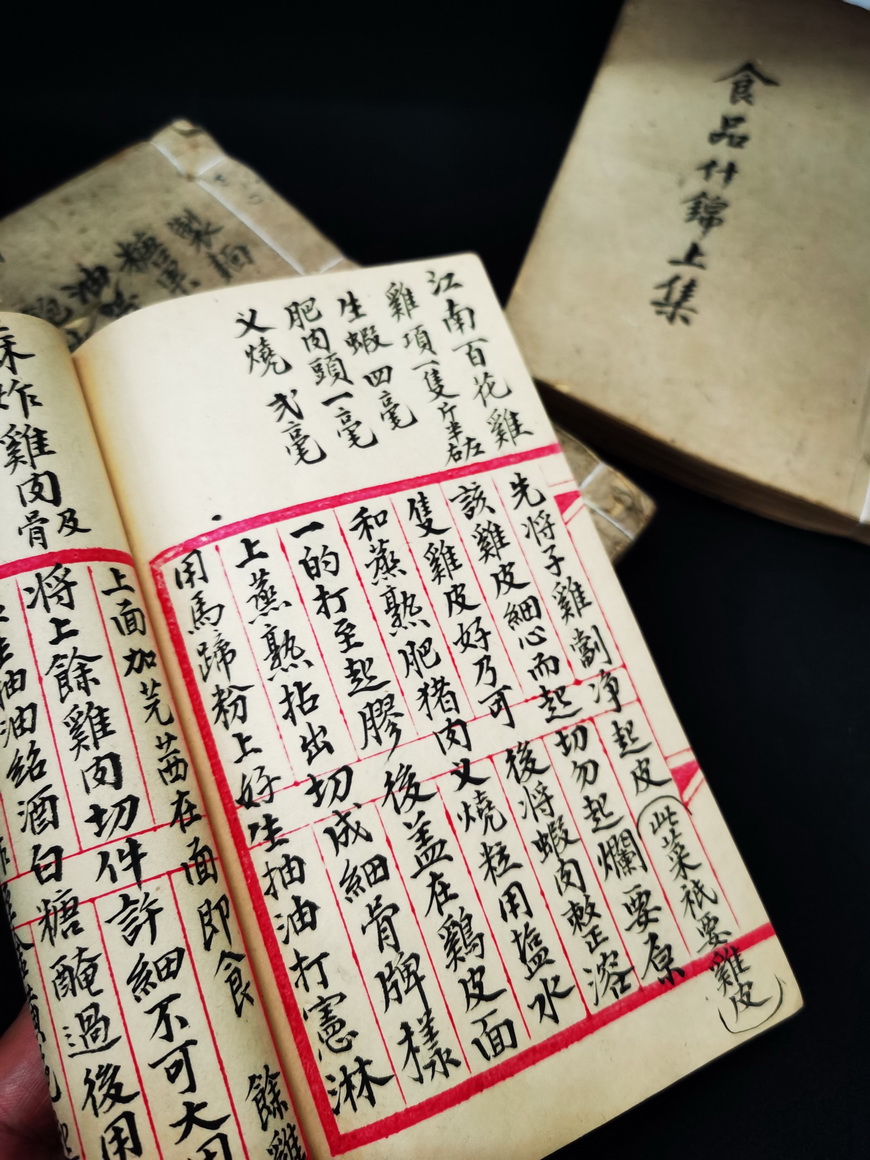 食品什錦上集
製麺
糖菓
油
江南百花雞
雞項一隻斤半左右
生蝦四毫
肥肉頭一毫
义燒弍毫
先将子雞劏净起皮(此菜祇要雞皮)
該雞皮細心而起切勿起爛要原
隻雞皮好乃可後将蝦肉敕正溶
和蒸熟肥猪肉义燒粒用塩水
一的打至起膠後盖在鷄皮面
上蒸熟拈出切成細骨牌樣
用馬蹄粉上好生抽油打憲淋
上面加芫茜在面即食
炸雞肉及骨
餘雞
将上餘雞肉切件許細不可大用
抽油紹酒白糖醃過後用